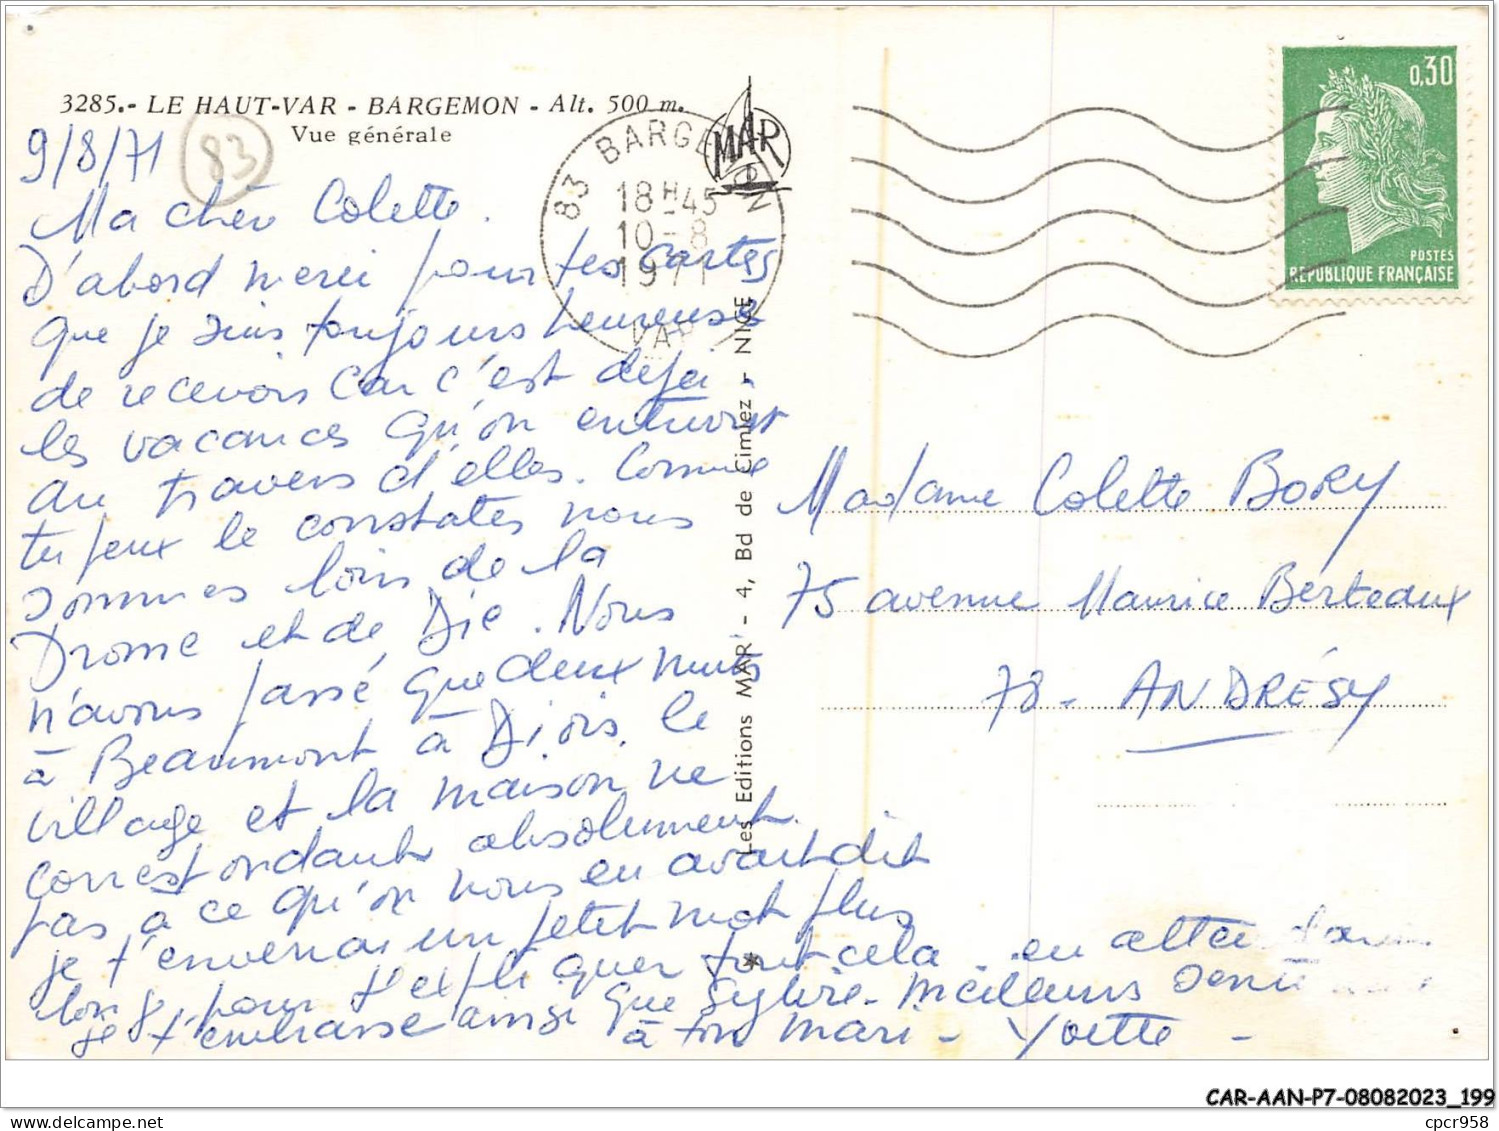 3285.- LE HAUT-VAR - BARGEMON - Alt. 500 m.
Vue générale
9/8/71
83
Ma chère Colette.
D'abord merci pour tes cartes
que je suis toujours heureuse
de recevoir car c'est déjà
les vacances qu'on entrevoit
au travers d'elles. Comme
tu peux le constater nous
sommes loin de la
Drome et de Die. Nous
n'avons passé que deux nuits
à Beaumont à Diois, le
village et la maison ne
correspondant absolument
pas à ce qu'on nous en avait dit
je t'enverrai un petit mot plus
long pour t'expliquer tout cela. en
je t'embrasse ainsi que Sylvie. Meilleurs
à ton mari - Yvette -
83 BARGEMON
18H45
10-8
1971
VAR
MAR
Les Editions MAR - 4, Bd de Cimiez - NICE
0,30
POSTES
REPUBLIQUE FRANÇAISE
Madame Colette BORY
75 avenue Maurice Berteaux
78 - ANDRÉSY
CAR-AAN-P7-08082023_199
www.delcampe.net
cpcr958